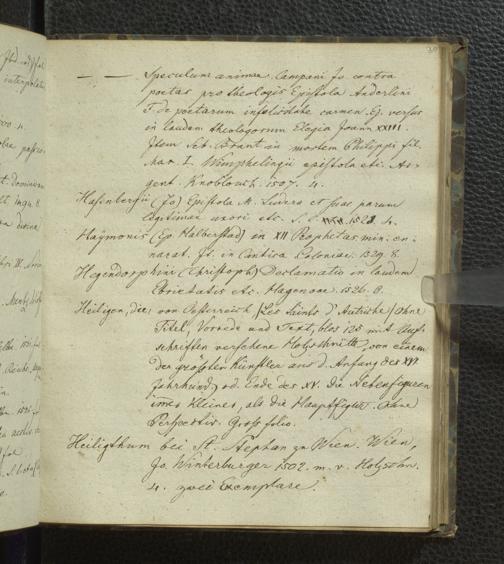 30
— — Speculum animae. Campani Jo. contra
poetas pro theologis Epistola Anderlini
F. de poetarum infelicitate carmen. Ej. versus
in laudem theologorum Elogia Joann XXIII.
Item Seb. Brant in mortem Philippi fil.
Max. I. Wimphelingii epistola etc. Ar-
gent. Knoblouch. 1507. 4.
(Jo) Epistola M. Luders et suae parum
legitimae uxori etc. S. l. 1528. 4.
Haymonis (Ep. Halberstad) in XII Prophetas min. e-
narrat. It. in Cantica Coloniae. 1529. 8.
Hegendorphini (Christoph) Declamatio in laudem
Ebrietatis etc. Hagenoae. 1526. 8.
Heiligen, die, von Oesterreich /Les Saints d'Autriche/ Ohne
Titel, Vorrede und Text, blos 125 mit Auf-
schriften versehene Holzschnitte, von einem
der größten Künstler aus d. Anfang des XVI.
Jahrhund. od. Ende des XV. Die Nebenfiguren
immer kleiner, als die Hauptfigur. Ohne
Perspectiv. Groß folio.
Heiligthum bei St. Stephan zu Wien. Wien,
Jo. Winterburger 1502. m. v. Holzschn.
4. zwei Exemplare.